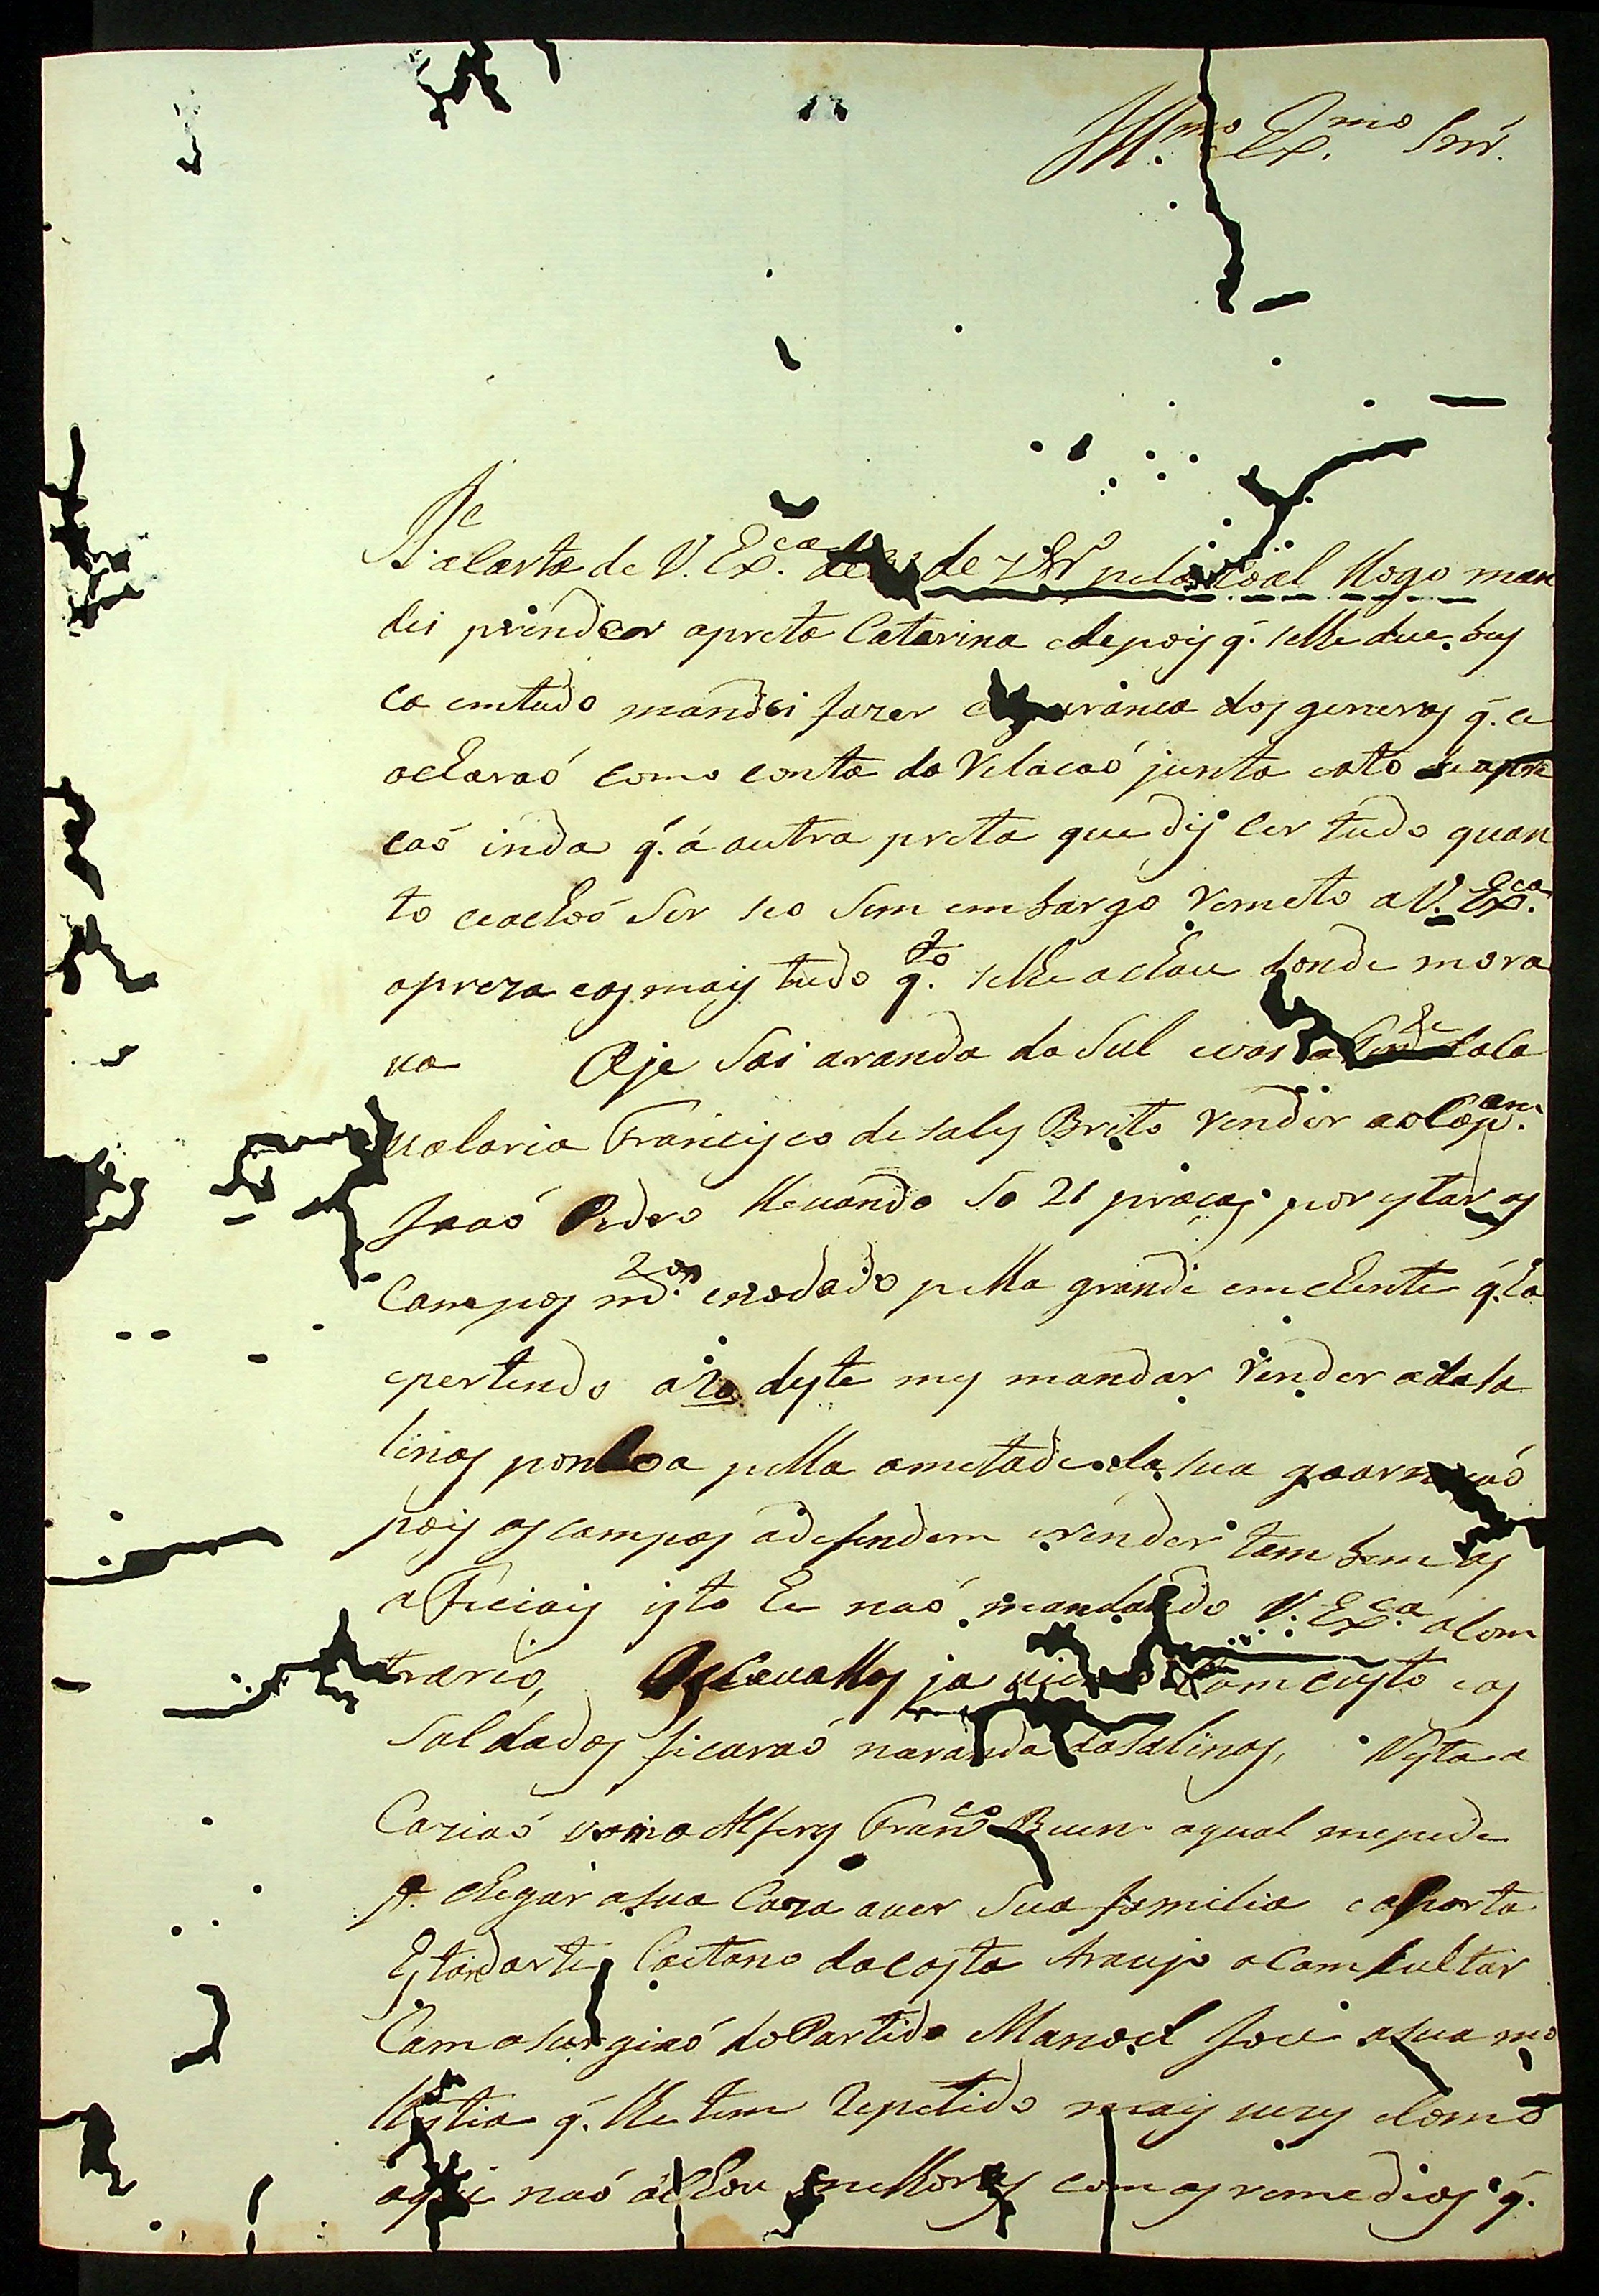 Ill.mo Ex.mo Snr.
R.e a Carta de V. Ex.ca de de 7br.o pela coal llogo man
dei prender apreta Catarina edepois q. selhe due bus
ca emtudo mandei fazer dos generos q. ce
acharaó como conta da Relacaó junta
caó inda q. á autra preta que dis cer tudo quan
to ceachoó ser seo sem embargo Remeto a V. Ex.ca
apreza eos mais tudo q.to selhe achou donde mora
va Oje Sai aronda do Sul
valaria Francisco desales Brito Render aoCap.am
Joaó Pedro llevando So 21 pracas por estar os
Campos m.tos pella grande emchente q.
epertendo a 20 deste mes mandar Render adasa
linas pella ametade da sua
pois os campos adefendem eRender tam bem os
oficiais isto he naó mandando V. Ex.ca alom
trario, Os Cavallos ja com custo eos
Soldados ficaraó naronda daSalinas, Nesta o
Caziaó vaio Alferes Fran.co Buen aqual mepede
p.a chegar asua Caza aver Sua familia eoporta
Estandarte Caetano dacosta Araujo aComsultar
Com osurgiaó do Partido Manoel Joce asua mo
llestia q. lhe tem Repetido mais vezes ecomo
aqui naó achou milhoras com os remedios q.